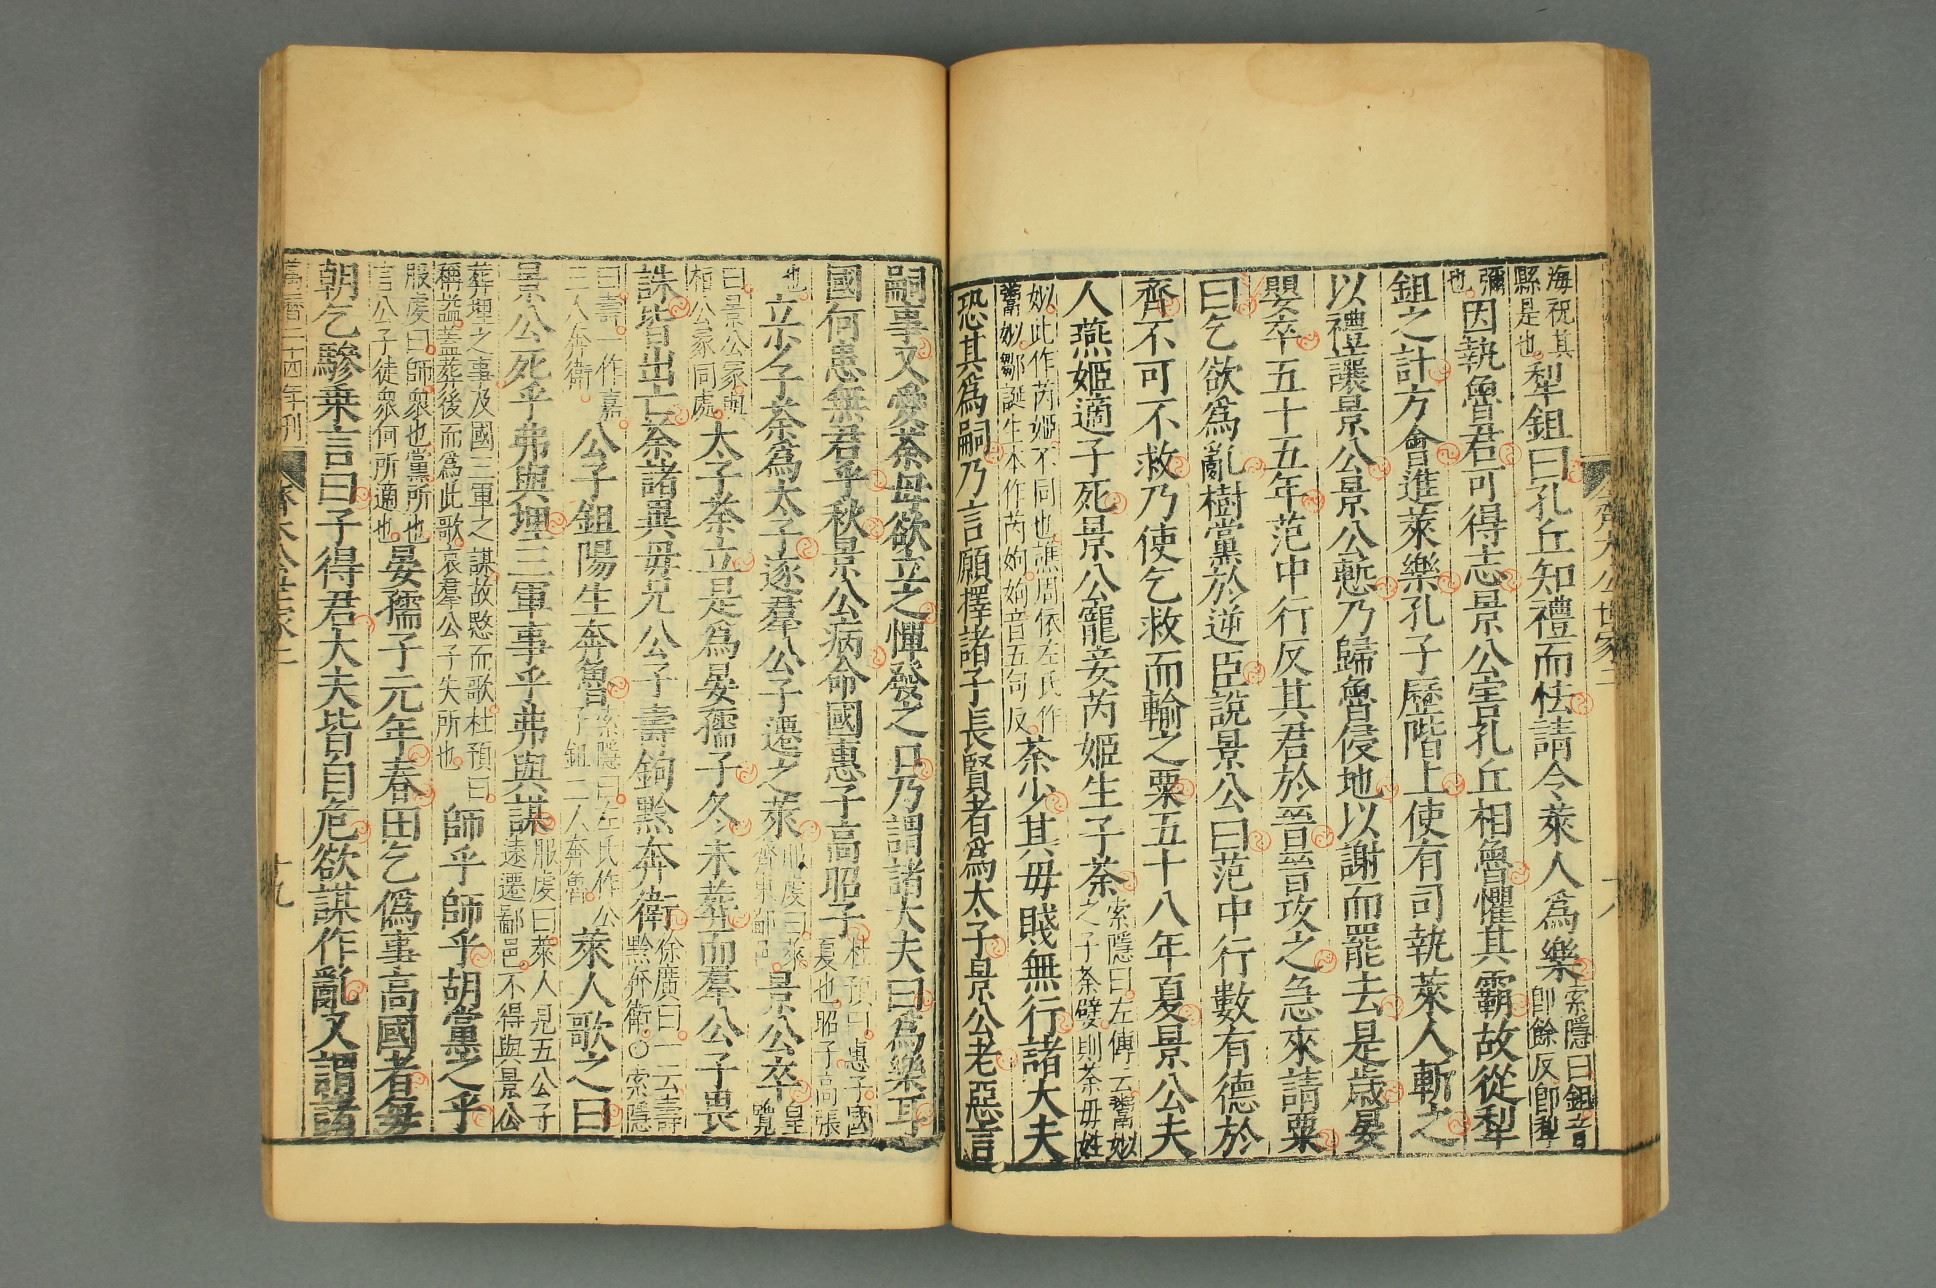 海祝其縣是也犁鉏曰孔丘知禮而怯請令萊人為樂索隱曰鉏音即餘反即犁
彌也因執魯君可得志景公害孔丘相魯懼其霸故從犁
鉏之計方會進萊樂孔子歷階上使有司執萊人斬之
以禮讓景公景公慙乃歸魯侵地以謝而罷去是歲晏
嬰卒五十五年范中行反其君於晉晉攻之急來請粟
曰乞欲為亂樹黨於逆臣說景公曰范中行數有德於
齊不可不救乃使乞救而輸之粟五十八年夏景公夫
人燕姬適子死景公寵妾芮姬生子荼索隱曰左傳云鬻姒之子荼嬖則荼母姓
姒此作芮姬不同也譙周依左氏作鬻姒鄒誕生本作芮姁姁音五句反荼少其母賤無行諸大夫
恐其為嗣乃言願擇諸子長賢者為太子景公老惡言
齊太公世家二
十八
嗣事又愛荼母欲立之憚發之口乃謂諸大夫曰為樂耳
國何患無君乎秋景公病命國惠子高昭子杜預曰惠子國夏也昭子高張
也立少子荼為太子逐羣公子遷之萊服虔曰萊齊東鄙邑景公卒皇覽
曰景公冢與桓公冢同處太子荼立是為晏孺子冬未葬而羣公子畏
誅皆出亡荼諸異母兄公子壽駒黔奔衛徐廣曰一云壽黔奔衛○索隱
曰壽一作嘉三人奔衛公子鉏陽生奔魯索隱曰左氏作公子鉏二人奔魯萊人歌之曰
景公死乎弗與埋三軍事乎弗與謀服虔曰萊人見五公子遠遷鄙邑不得與景公
葬埋之事及國三軍之謀故愍而歌杜預曰稱謚蓋葬後而為此歌哀羣公子失所也師乎師乎胡黨之乎
服虔曰師衆也黨所也言公子徒衆何所適也晏孺子元年春田乞偽事高國者每
朝乞驂乘言曰子得君大夫皆自危欲謀作亂又謂諸
萬曆二十四年刊
齊太公世家二
十九